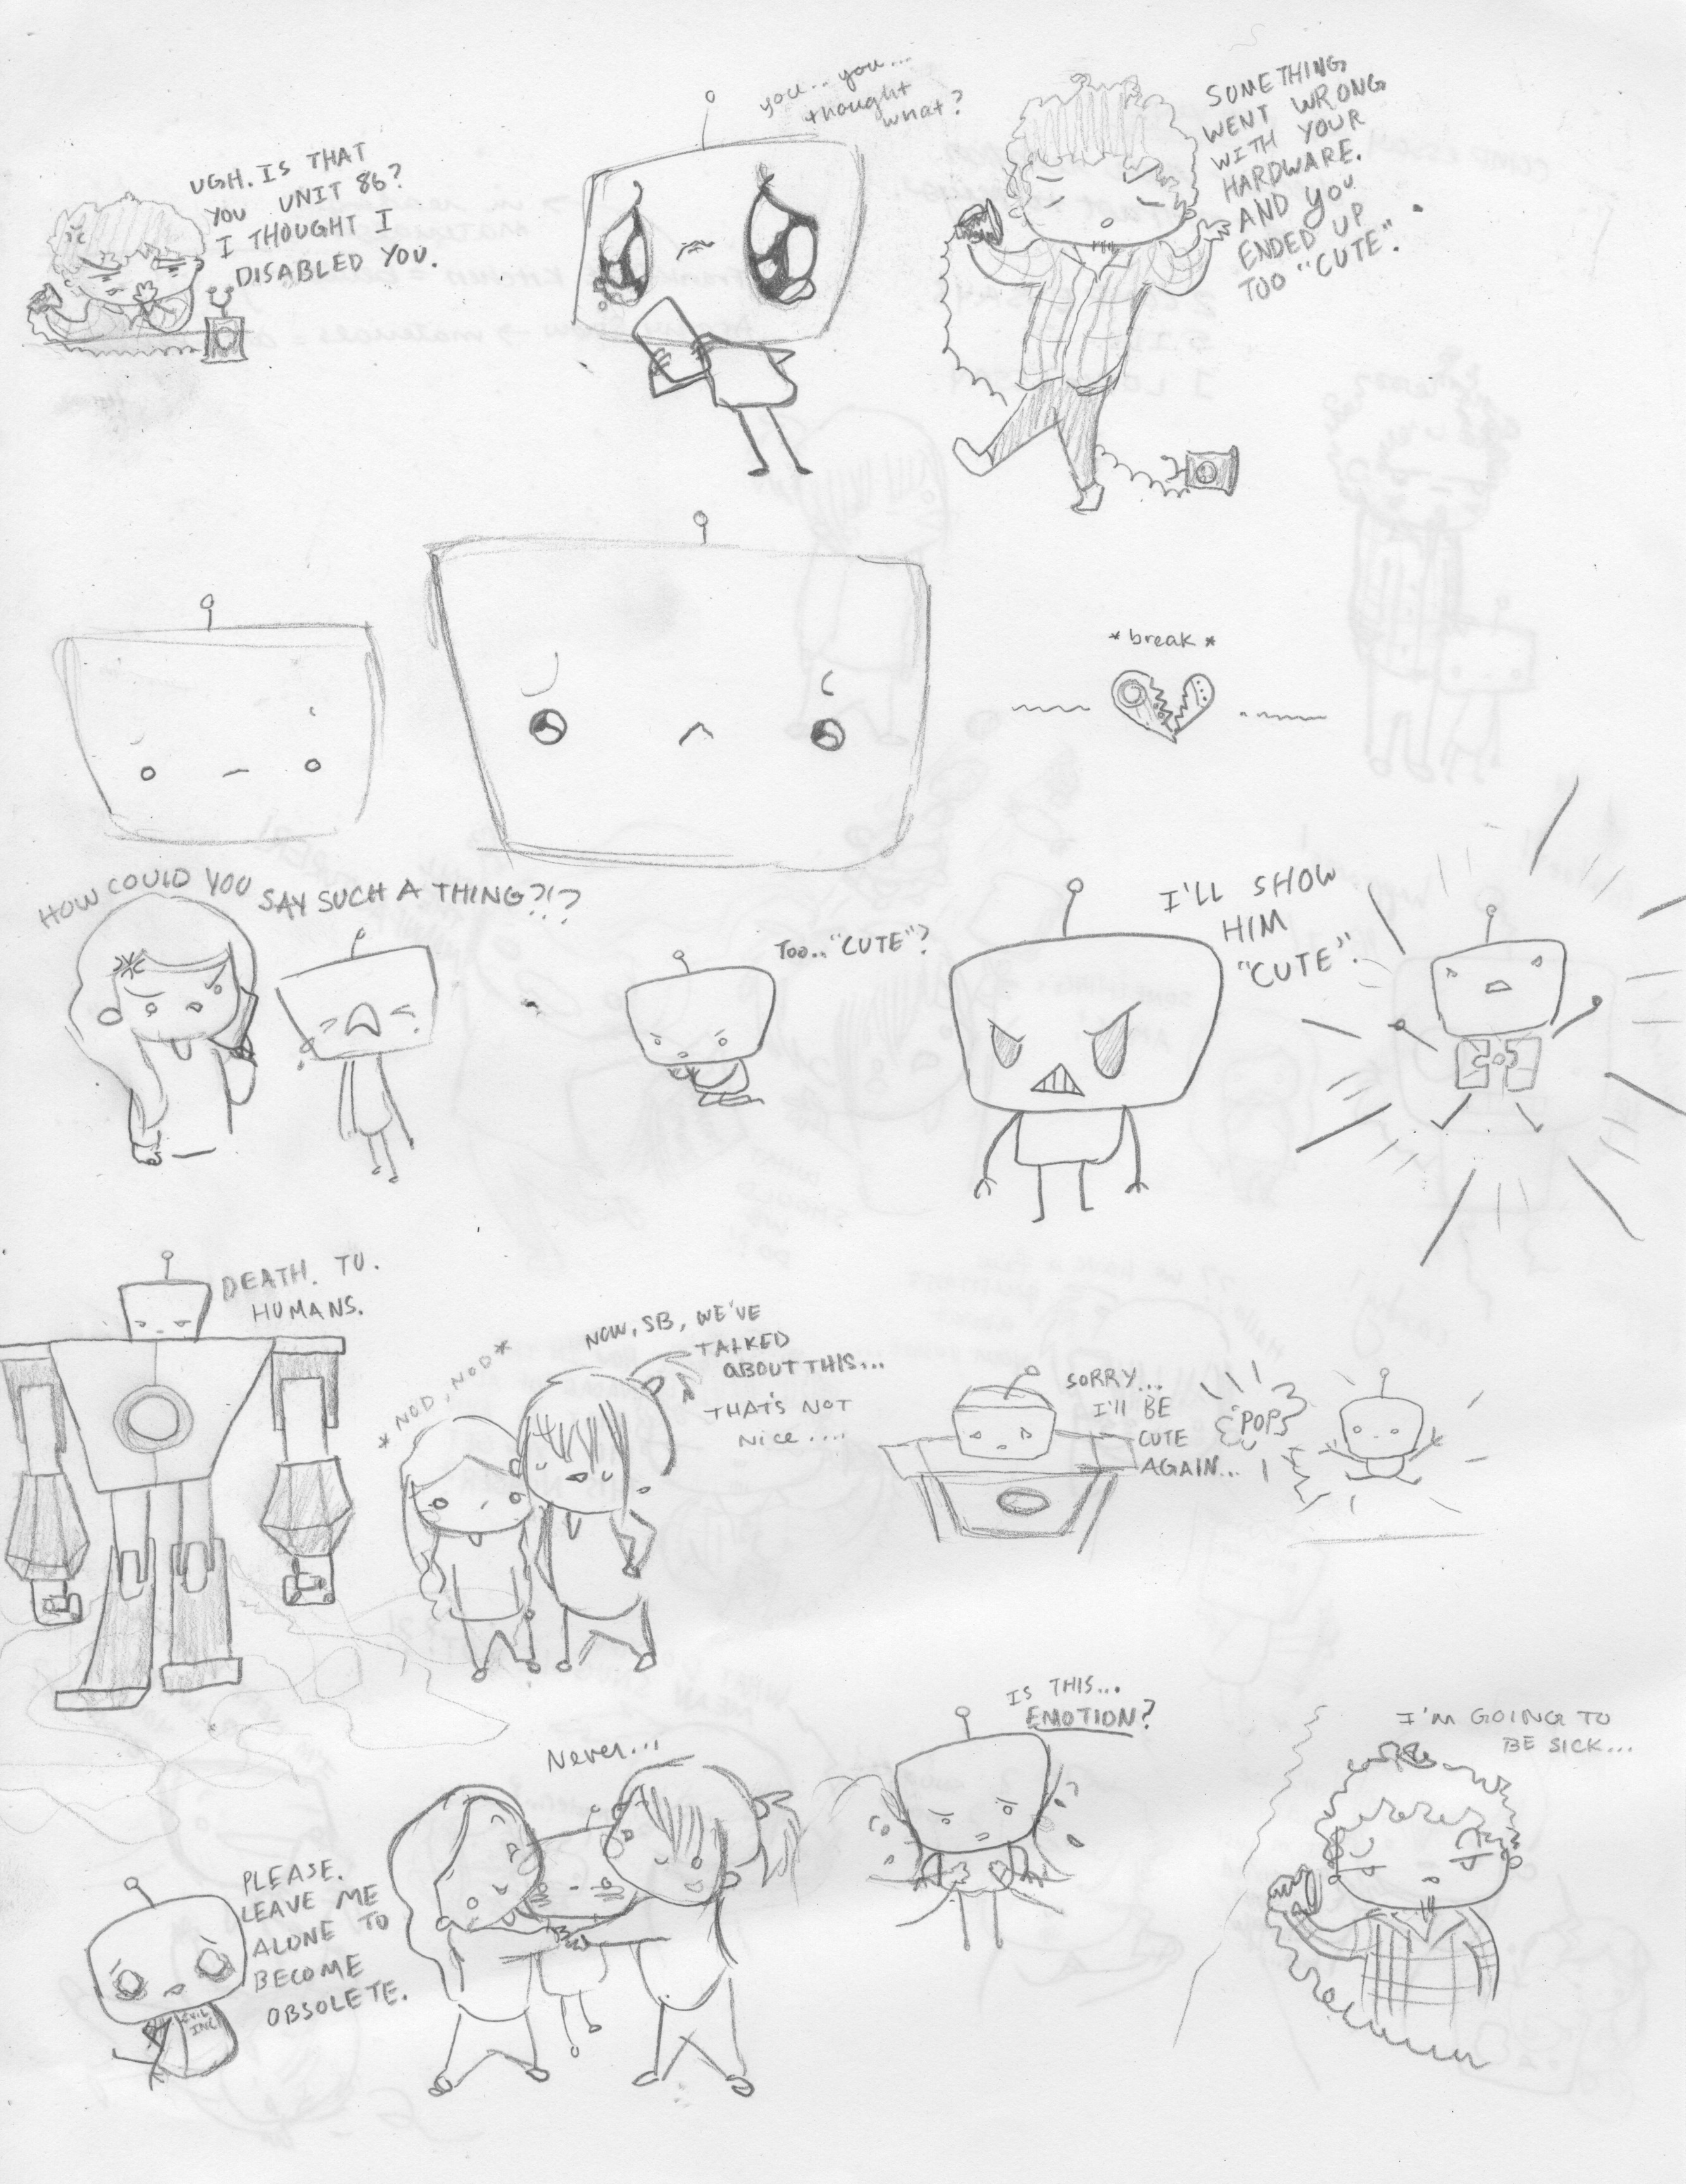 UGH. IS THAT
YOU UNIT 86?
I THOUGHT I
DISABLED YOU.
you.. you...
thought
what?
SOMETHING
WENT WRONG
WITH YOUR
HARDWARE.
AND YOU
ENDED UP
TOO "CUTE".
*break*
HOW COULD YOU SAY SUCH A THING?!?
TOO.. "CUTE"?
I'LL SHOW
HIM
"CUTE".
DEATH. TO.
HUMANS.
*NOD, NOD*
NOW, SB, WE'VE
TALKED
ABOUT THIS...
THAT'S NOT
NICE....
SORRY...
I'LL BE
CUTE
AGAIN...
POP
PLEASE.
LEAVE ME
ALONE TO
BECOME
OBSOLETE.
EVIL
INC.
Never...
IS THIS...
EMOTION?
I'M GOING TO
BE SICK...